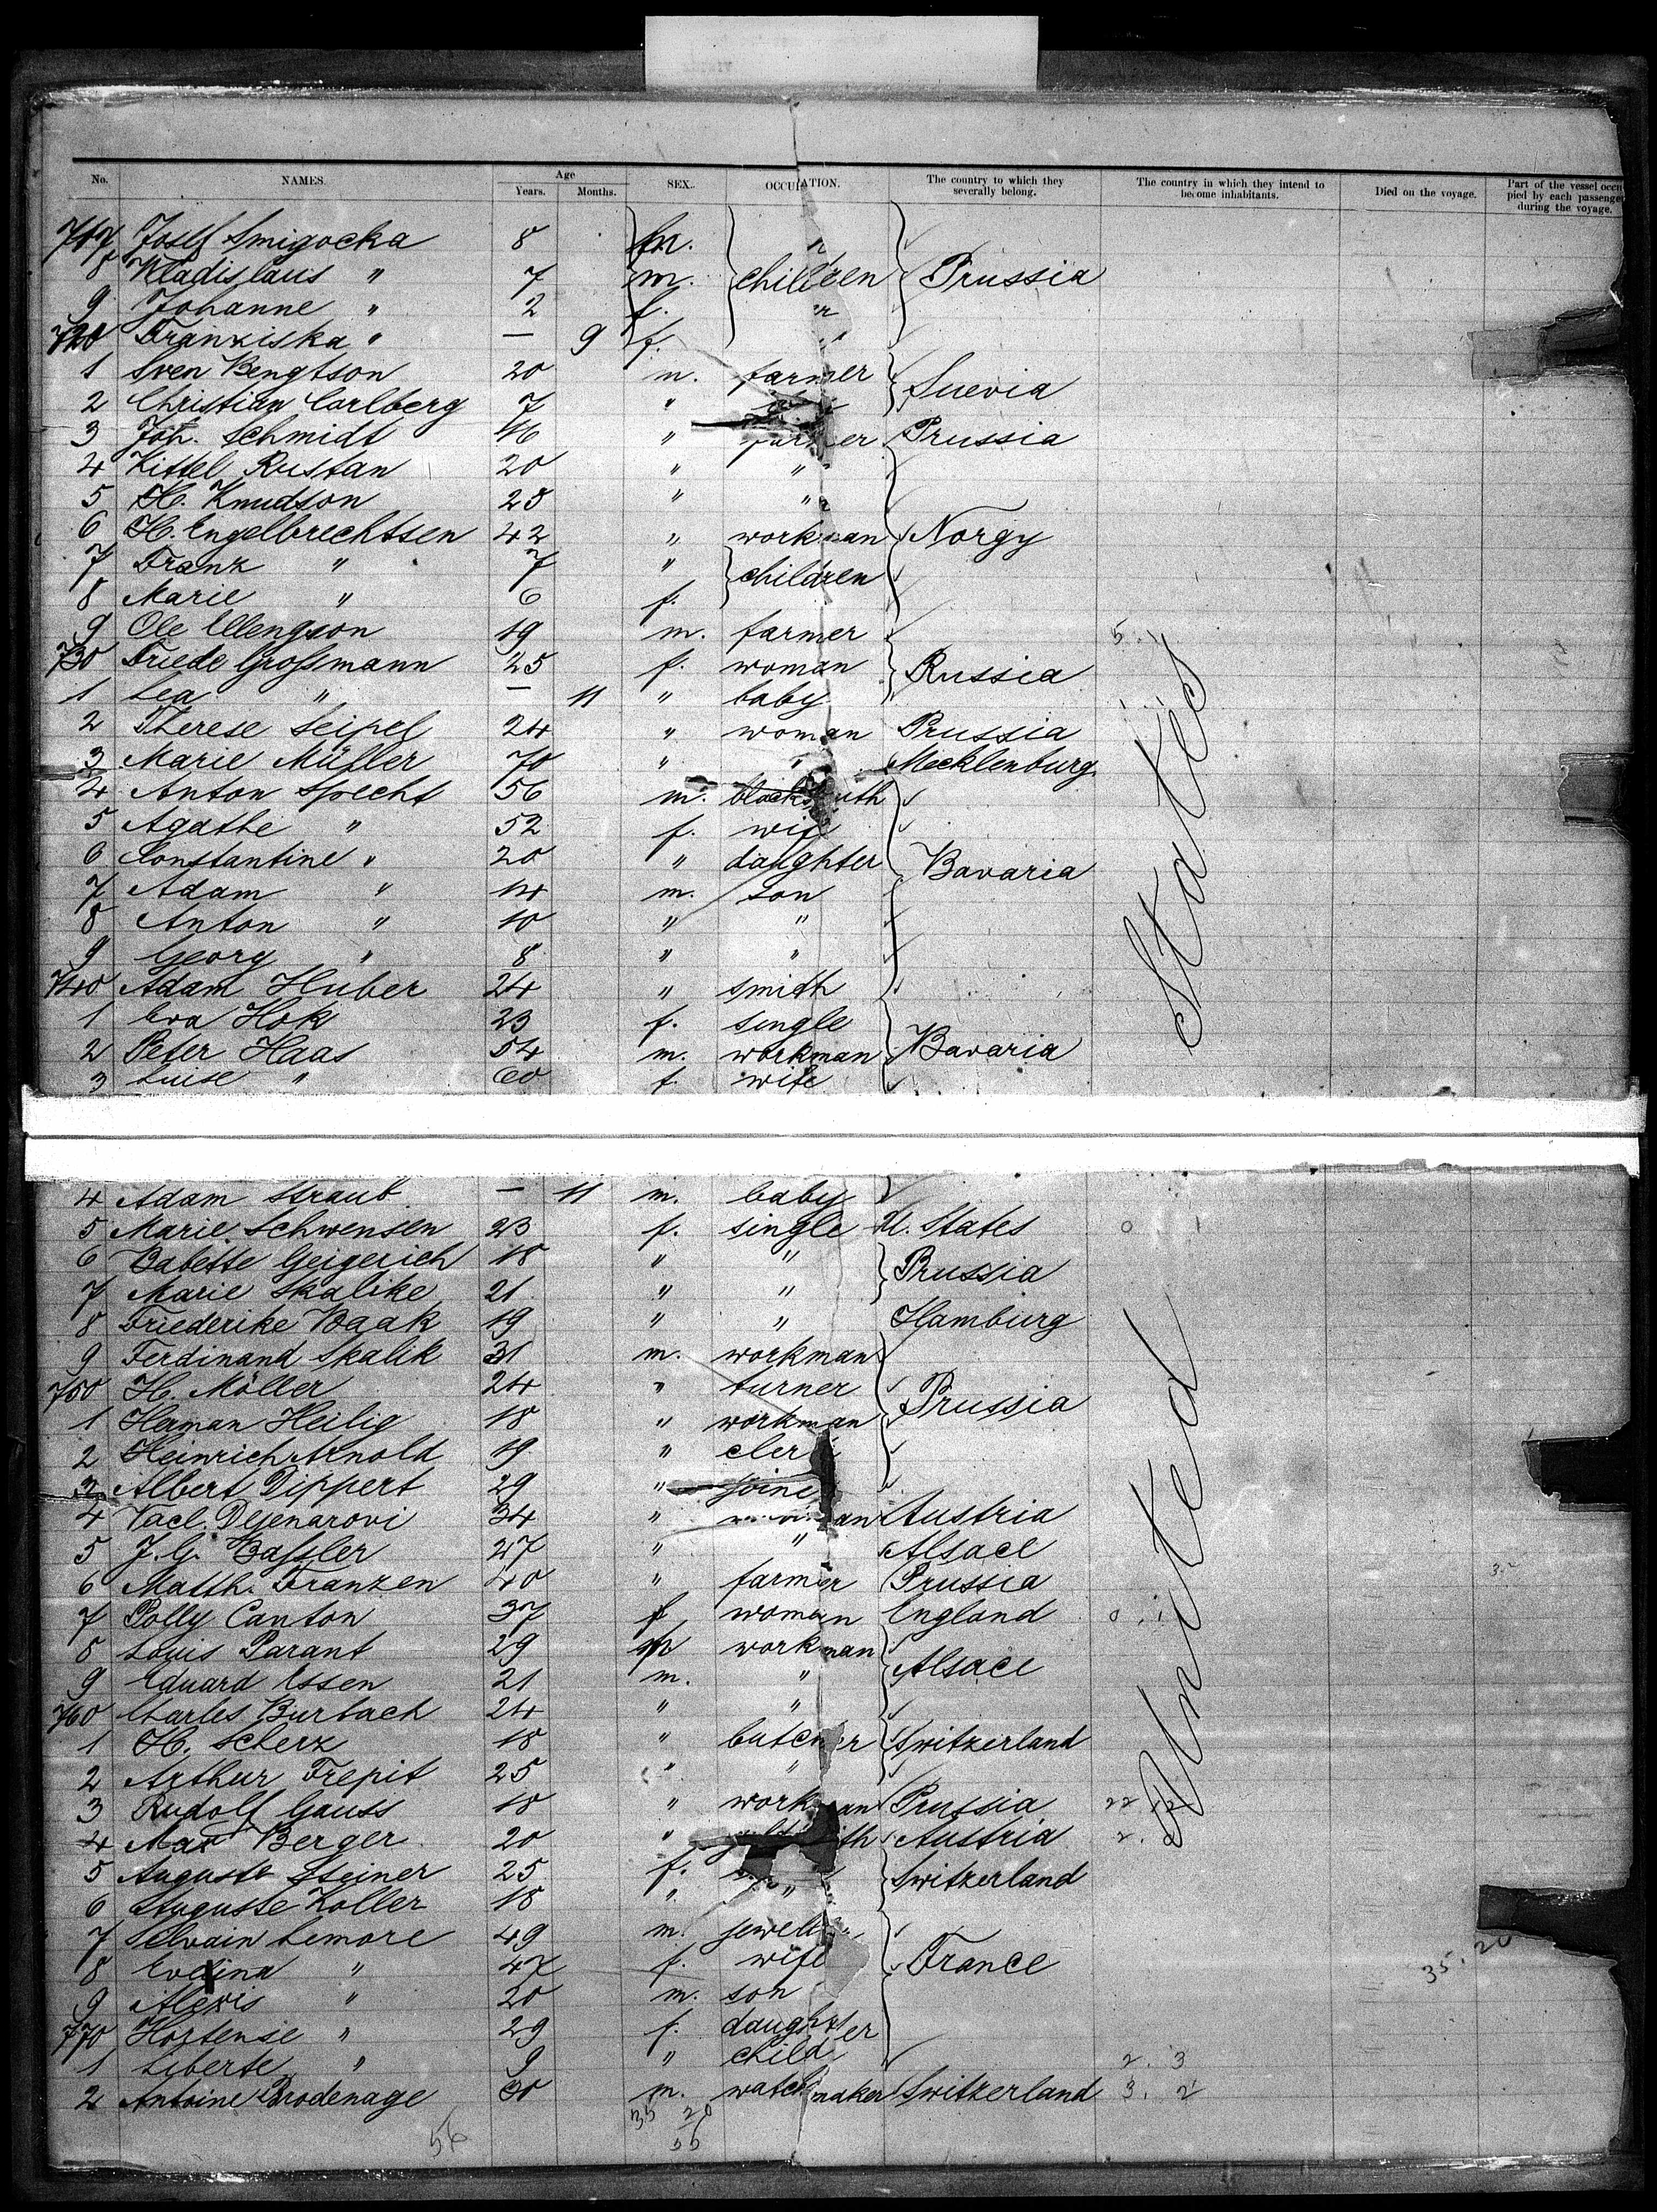 No. NAMES. Age Years. Months. SEX. OCCUPATION. The country to which they severally belong. The country in which they intend to become inhabitants. Died on the voyage. Part of the vessel occupied by each passenger during the voyage.
717 Josef Smigocka 8 m.
8 Wladislaus " 7 m. children Prussia
9 Johanne " 2 f.
720 Franziska " — 9 f.
1 Sven Bengtson 20 m. farmer Suevia
2 Christian Carlberg 7 "
3 Joh. Schmidt 46 " farmer Prussia
4 Kittel Rustan 20 " "
5 H. Knudson 28 " "
6 H. Engelbrechtsen 42 " workman Norgy
7 Franz " 7 " children
8 Marie " 6 f.
9 Ole 19 m. farmer
730 Friede Großmann 25 f. woman Russia
1 Lea " — 11 " baby
2 Therese Seipel 24 " woman Prussia
3 Marie Müller 70 " " Mecklenburg
4 Anton Specht 56 m. blacksmith
5 Agathe " 52 f. wife
6 Constantine " 20 " daughter Bavaria
7 Adam " 14 m. son
8 Anton " 10 " "
9 Georg " 8 " "
740 Adam Huber 24 " smith
1 Eva Hok 23 f. single
2 Peter Haas 54 m. workman Bavaria
3 Luise " 60 f. wife
4 Adam Straub — 11 m. baby
5 Marie Schwensen 23 f. single U. States
6 Babette Geigerich 18 " " Prussia
7 Marie Skalike 21 " "
8 Friederike Baak 19 " " Hamburg
9 Ferdinand Skalik 31 m. workman
750 H. Möller 24 " turner Prussia
1 Herman Heilig 18 " workman
2 Heinrich Arnold 19 " clerk
3 Albert Dippert 29 " joiner
4 Vacl. 34 " Austria
5 J. G. Baßler 27 " " Alsace
6 Matth. Franzen 40 " farmer Prussia
7 Polly Canton 37 f. woman England
8 Louis Parant 29 m workman Alsace
9 Eduard Essen 21 m. "
760 Charles Burbach 24 " "
1 H. Scherz 18 " butcher Switzerland
2 Arthur Frepit 25 " "
3 Rudolf Gauss 18 " workman Prussia
4 Max Berger 20 " Austria
5 Auguste Steiner 25 f. Switzerland
6 Auguste Koller 18 " "
7 Selvain Lemore 49 m. jeweler
8 Evelina " 47 f. wife France
9 Alexis " 20 m. son
770 Hortense " 29 f. daughter
1 Liberte " 9 " child
2 Antoine Brodenage 30 m. watchmaker Switzerland
United States
35. 20
35 20
55
56